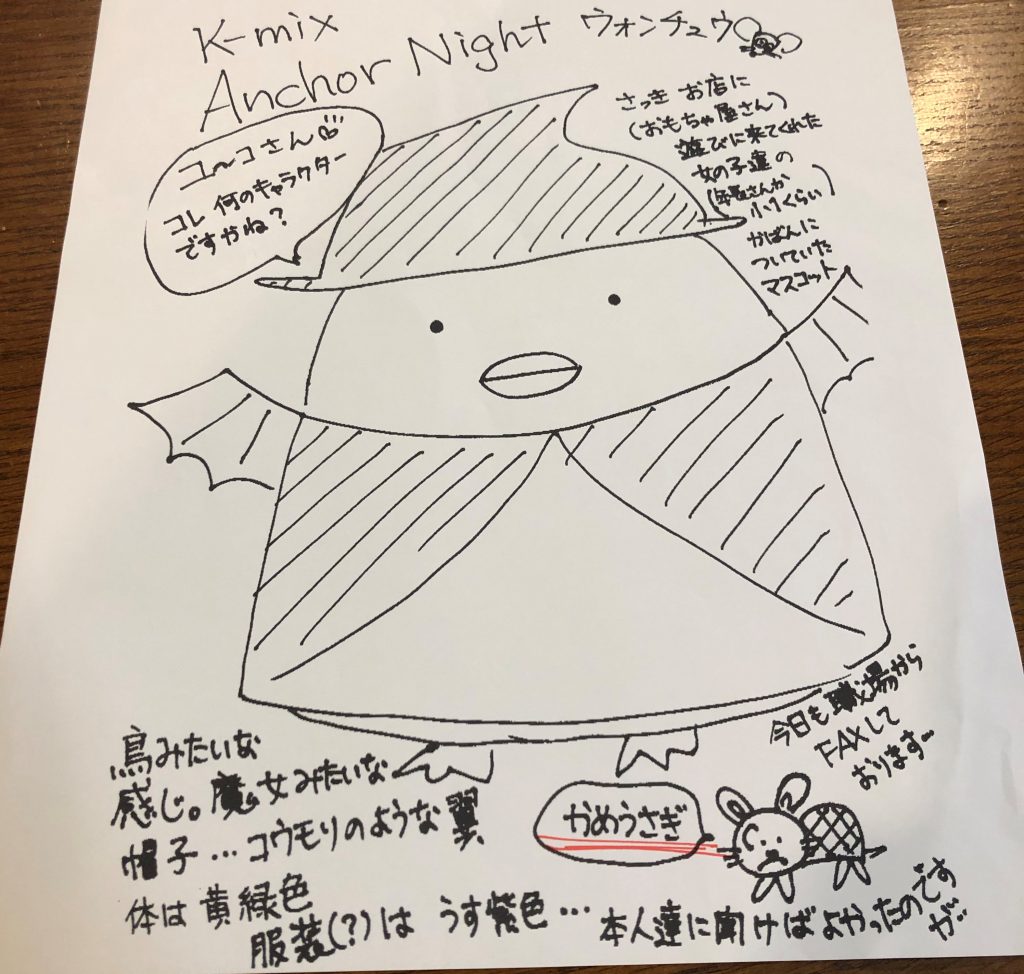 K-mix
Anchor Night ウォンチュウ
ユ〜コさん
コレ 何のキャラクター
ですやね?
さっき お店に
(おもちゃ屋さん)
遊びに来てくれた
女の子達の
(年長さんか
小1くらい)
かばんに
ついていた
マスコット
今日も職場から
FAXして
おります〜
鳥みたいな
感じ。魔女みたいな
帽子…コウモリのような翼
体は黄緑色
服装(?)は うす紫色…
かめうさぎ
本人達に聞けばよかったのです
が